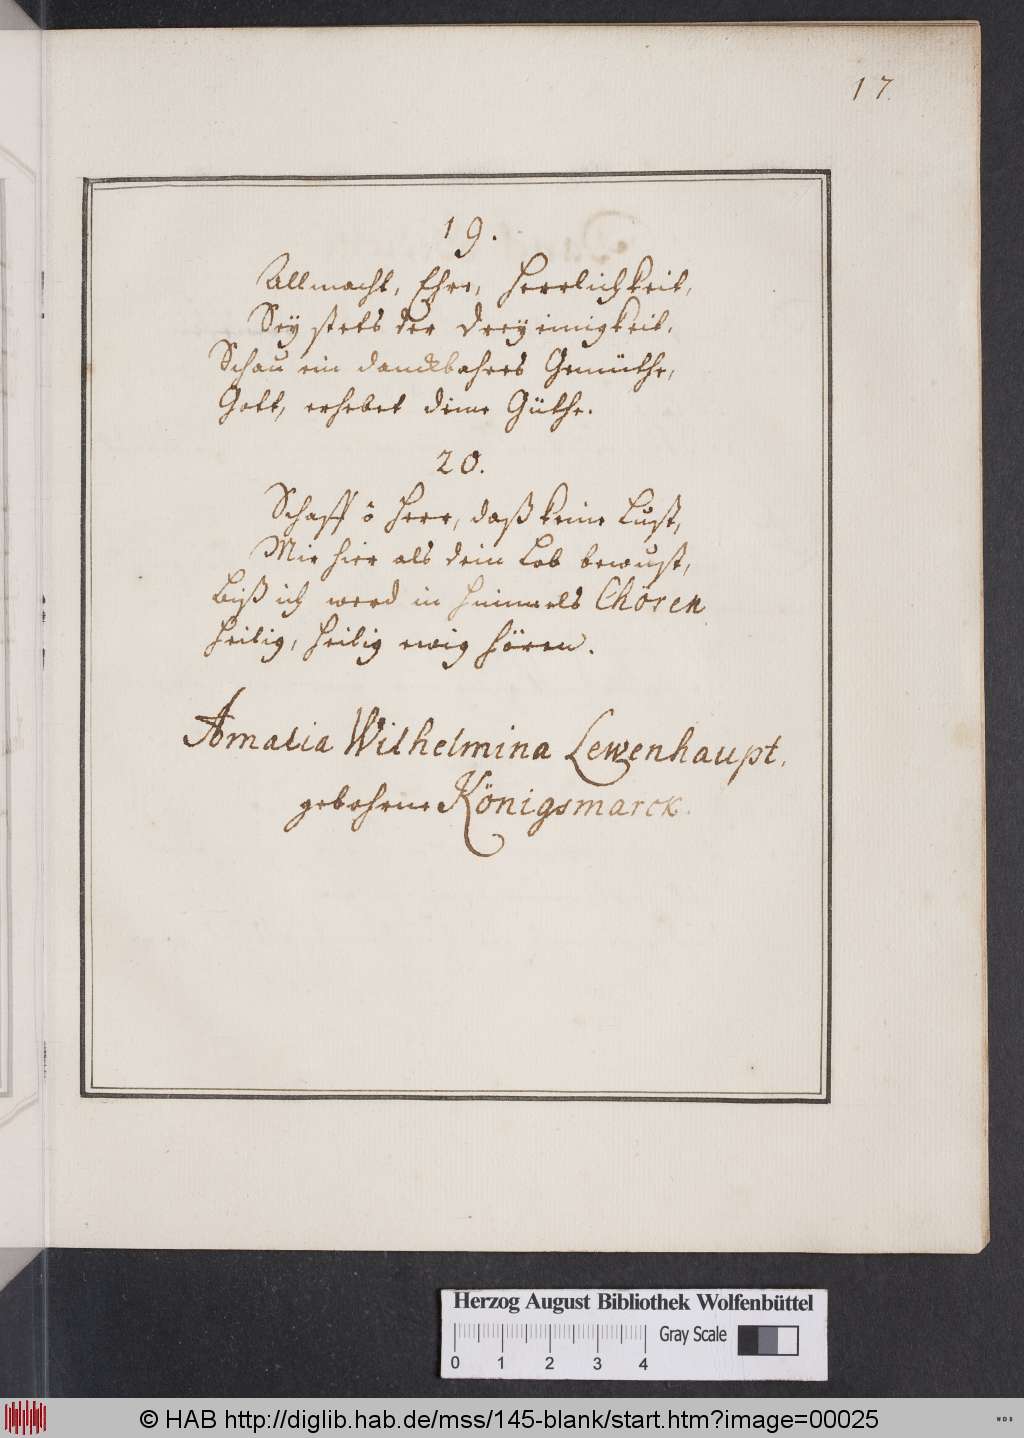 17.
19.
Allmacht, Ehre, Herrlichkeit,
Sey stets der Dreyeinigkeit,
Schau ein danckbahres Gemüthe,
Gott, erhebet deine Güthe.
20.
Schaff ô Herr, daß keine Lust,
Mir hier als dein Lob bewust,
Biß ich werd in Himmels Chören
Heilig, Heilig ewig hören.
Amalia Wilhelmina Lewenhaupt,
gebohrne Königsmarck.
Herzog August Bibliothek Wolfenbüttel
Gray Scale
0 1 2 3 4
© HAB http://diglib.hab.de/mss/145-blank/start.htm?image=00025